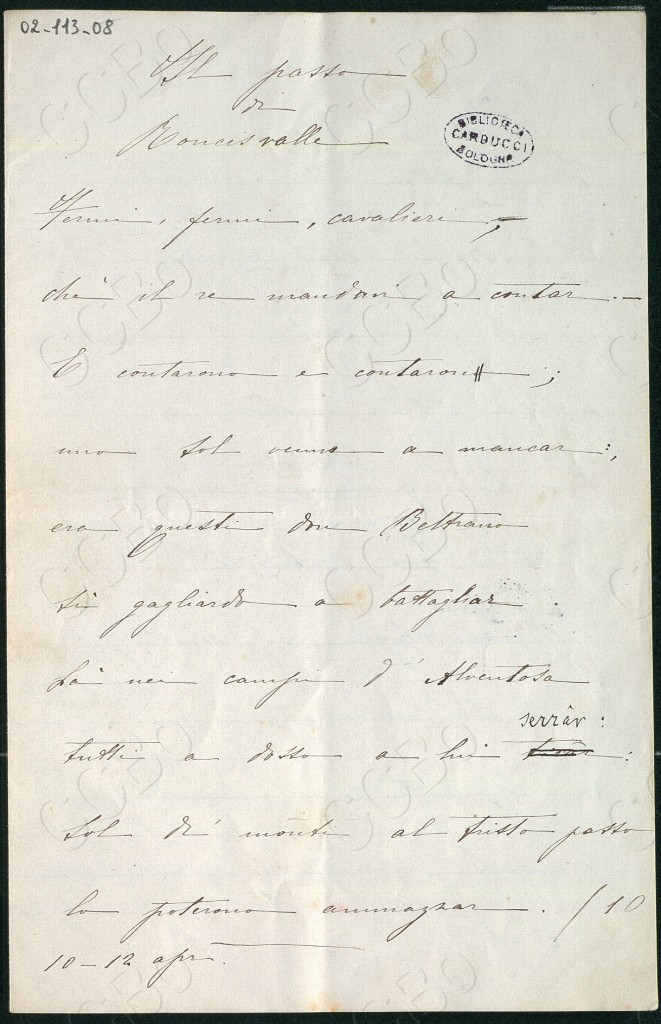 02-113-08
Il passo
di
Roncisvalle
BIBLIOTECA
CARDUCCI
BOLOGNA
Fermi, fermi, cavalieri,
chè il re mandavi a contar. —
E contarono e contaron;
uno sol venne a mancar:,
era questi don Beltrano
sì gagliardo a battagliar.
Là nei campi d'Alventosa
serrâr:
tutti a dosso a lui :
sol de' monti al tristo passo
lo poterono ammazzar. /10
10-12 apr.